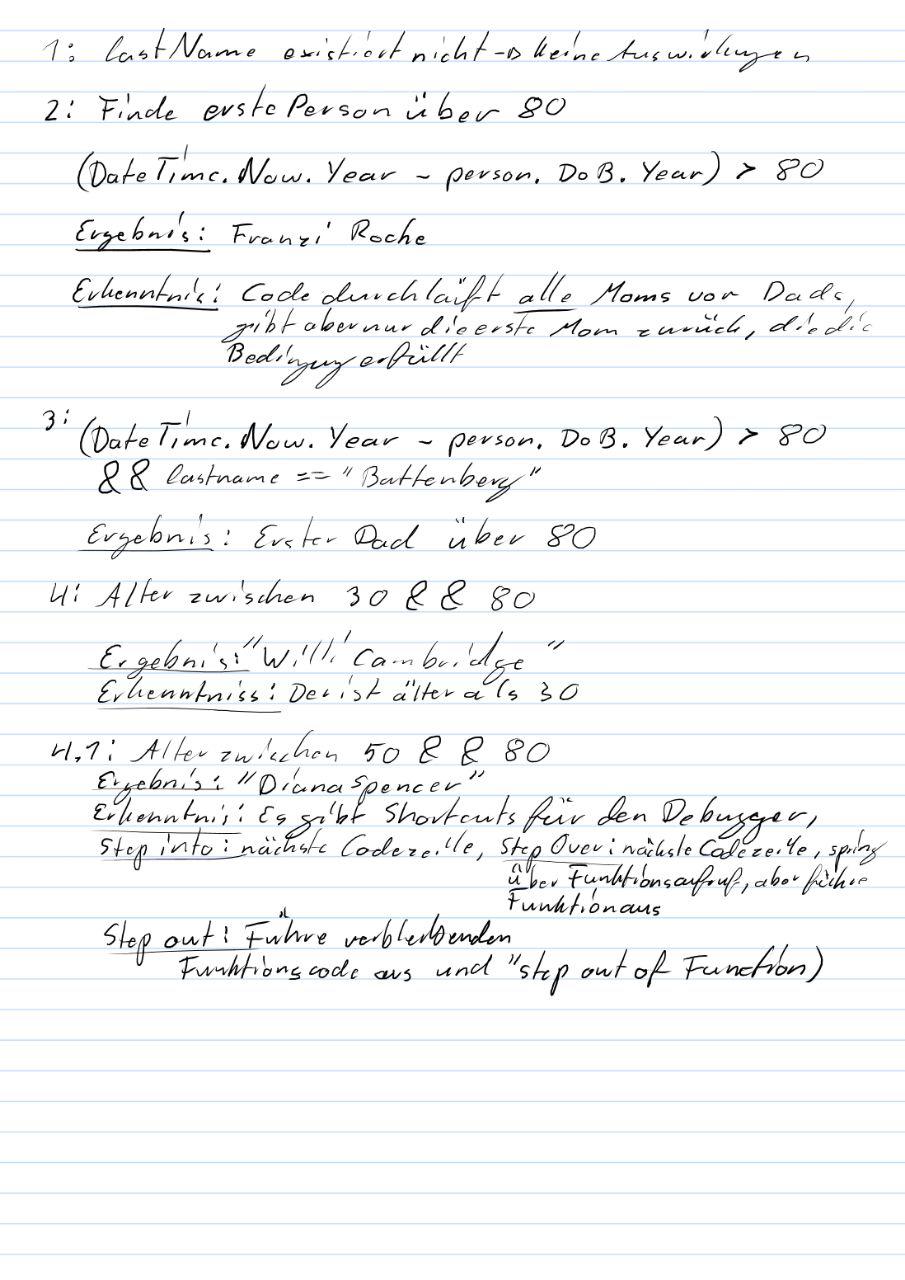 1: lastName existiert nicht → keine Auswirkungen
2: Finde erste Person über 80
(DateTime.Now.Year - person.DoB.Year) > 80
Ergebnis: Franzi Roche
Erkenntnis: Code durchläuft alle Moms vor Dads,
gibt aber nur die erste Mom zurück, die die
Bedingung erfüllt
3: (DateTime.Now.Year - person.DoB.Year) > 80
&& lastname == "Battenberg"
Ergebnis: Erster Dad über 80
4: Alter zwischen 30 && 80
Ergebnis: "Willi Cambridge"
Erkenntniss: Der ist älter als 30
4.1: Alter zwischen 50 && 80
Ergebnis: "Diana Spencer"
Erkenntnis: Es gibt Shortcuts für den Debugger,
Step into: nächste Codezeile, Step Over: nächste Codezeile, spring
über Funktionsaufruf, aber führe
Funktion aus
Step out: Führe verbleibenden
Funktionscode aus und "step out of Function)